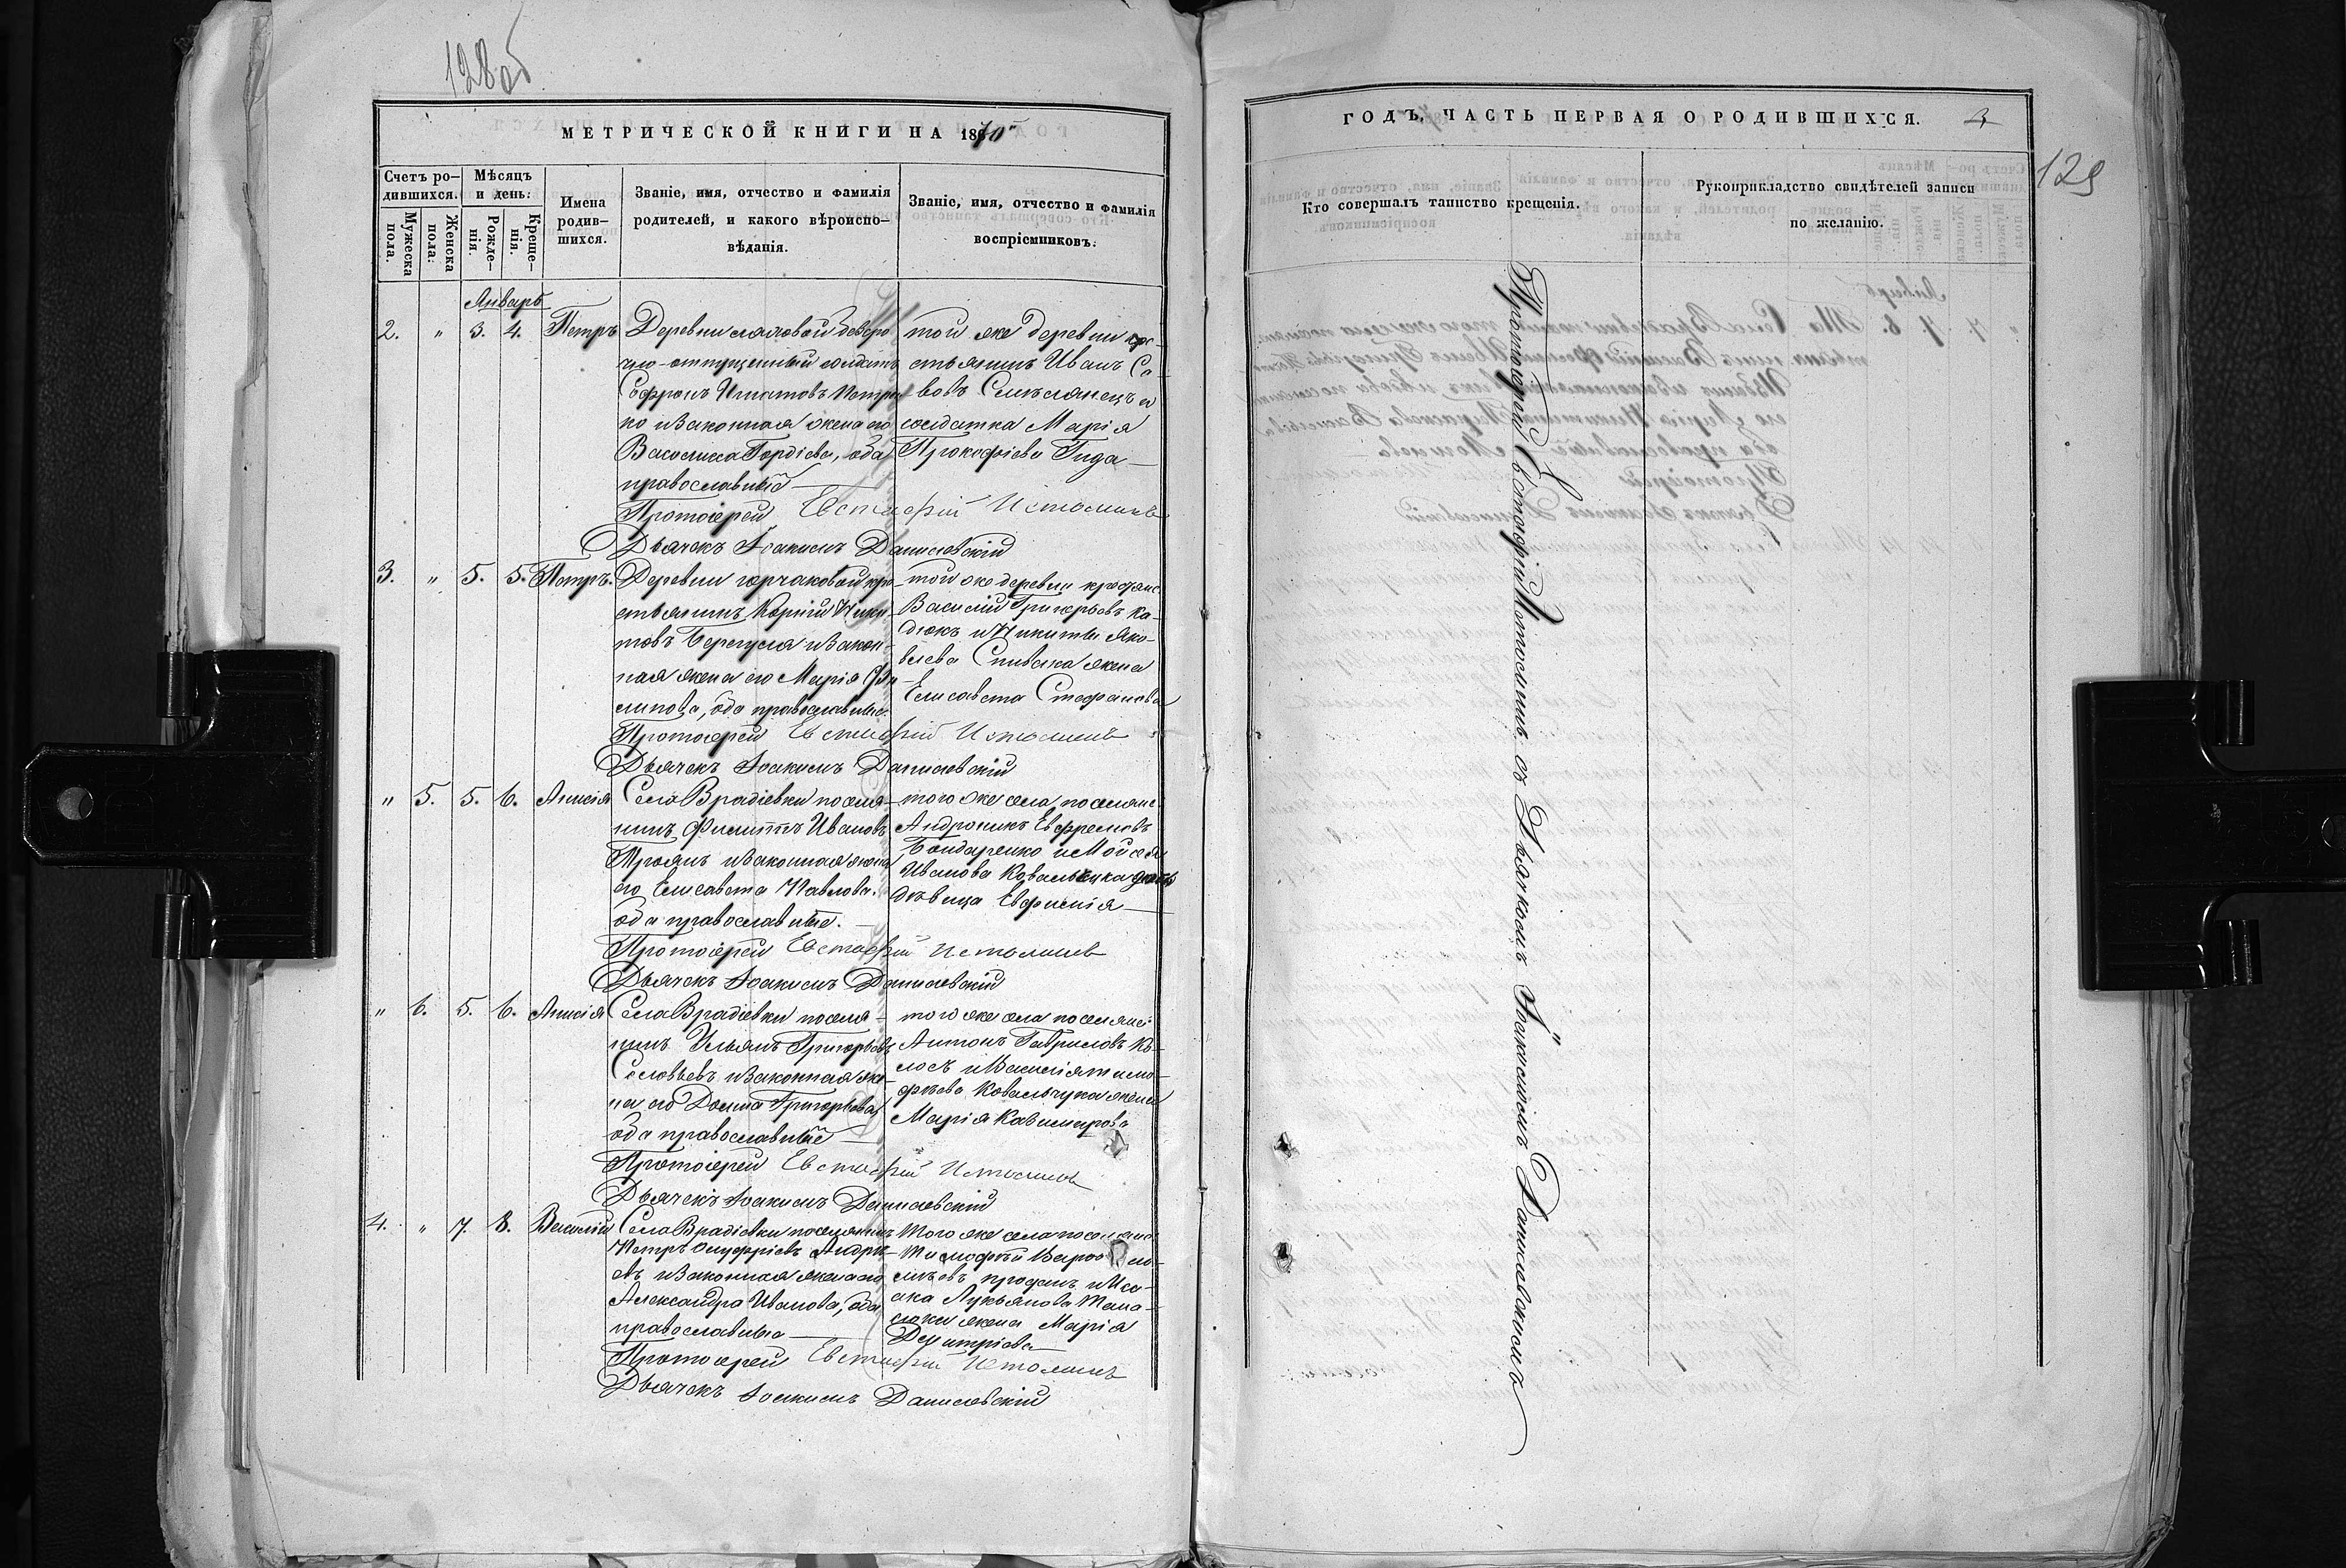 128об
МЕТРИЧЕСКОЙ КНИГИ НА 1870й
Счетъ ро-
дившихся.
Мѣсяцъ
и день:
Мужеска
пола.
Женска
пола.
Рожде-
нія.
Креще-
нія.
Имена
родив-
шихся.
Званіе, имя, отчество и фамилія
родителей, и какого вѣроиспо-
вѣданія.
Званіе, имя, отчество и фамилія
воспріемниковъ.
Январь
2. " 3. 4. Петръ
Деревни
отпущенный солдатъ
Софронъ Игнатовъ
ко и законная жена его
Василиса Гордіева, оба
православные
той же деревни кре-
стьянинъ Иванъ Са-
вовъ и
солдатка Марія
Прокофіева Гида
Протоіерей Евстафій Истоминъ
Дьячекъ Іоакимъ Данилевскій
3. " 5. 5. Петръ.
Деревни Юрчаковой кре-
стьянинъ Корній Ники-
товъ Берегуля и закон-
ная жена его Марія Фи-
липова, оба православные.
той же деревни крестьяне
Василій Григорьевъ Ка-
дюкъ и Никиты Яко-
влева Спивака жена
Елисавета Стефанова
Протоіерей Евстафій Истоминъ
Дьячекъ Іоакимъ Данилевскій
" 5. 5. 6. Анисія
Села Врадіевки поселя-
нинъ Филиппъ Ивановъ
Троянъ и законная жена
его Елисавета Павлова.
оба православные.
того же села поселяне
Андроникъ Евфремовъ
Бондаренко и Мойсея
Иванова дочь
дѣвица Евфимія
Протоіерей Евстафій Истоминъ
Дьячекъ Іоакимъ Данилевскій
" 6. 5. 6. Анисія
Села Врадіевки поселя-
нинъ Ульянъ Григорьевъ
Соловьевъ и законная же-
на его Домна Григорьева,
оба православные
того же села поселяне
Антонъ Гавриловъ Ко-
лосъ и Василія Тимо-
фѣева Ковальчука жена
Марія Казимирова
Протоіерей Евстафій Истоминъ
Дьячекъ Іоакимъ Данилевскій
4. " 7. 8. Василій
Села Врадіевки поселянинъ
Петръ Онуфріевъ Андрѣ-
евъ и законная жена его
Александра Иванова, оба
православные
Того же села поселяне
Тимофѣй
и Иса-
ака Лукьянова
жена Марія
Димитріева
Протоіерей Евстафій Истоминъ
Дьячекъ Іоакимъ Данилевскій
ГОДЪ, ЧАСТЬ ПЕРВАЯ О РОДИВШИХСЯ.
129
Кто совершалъ таинство крещенія.
Рукоприкладство свидѣтелей записи
по желанію.
Протоіерей Евстафій Истоминъ съ Дьячкомъ Іоакимомъ Данилевскимъ